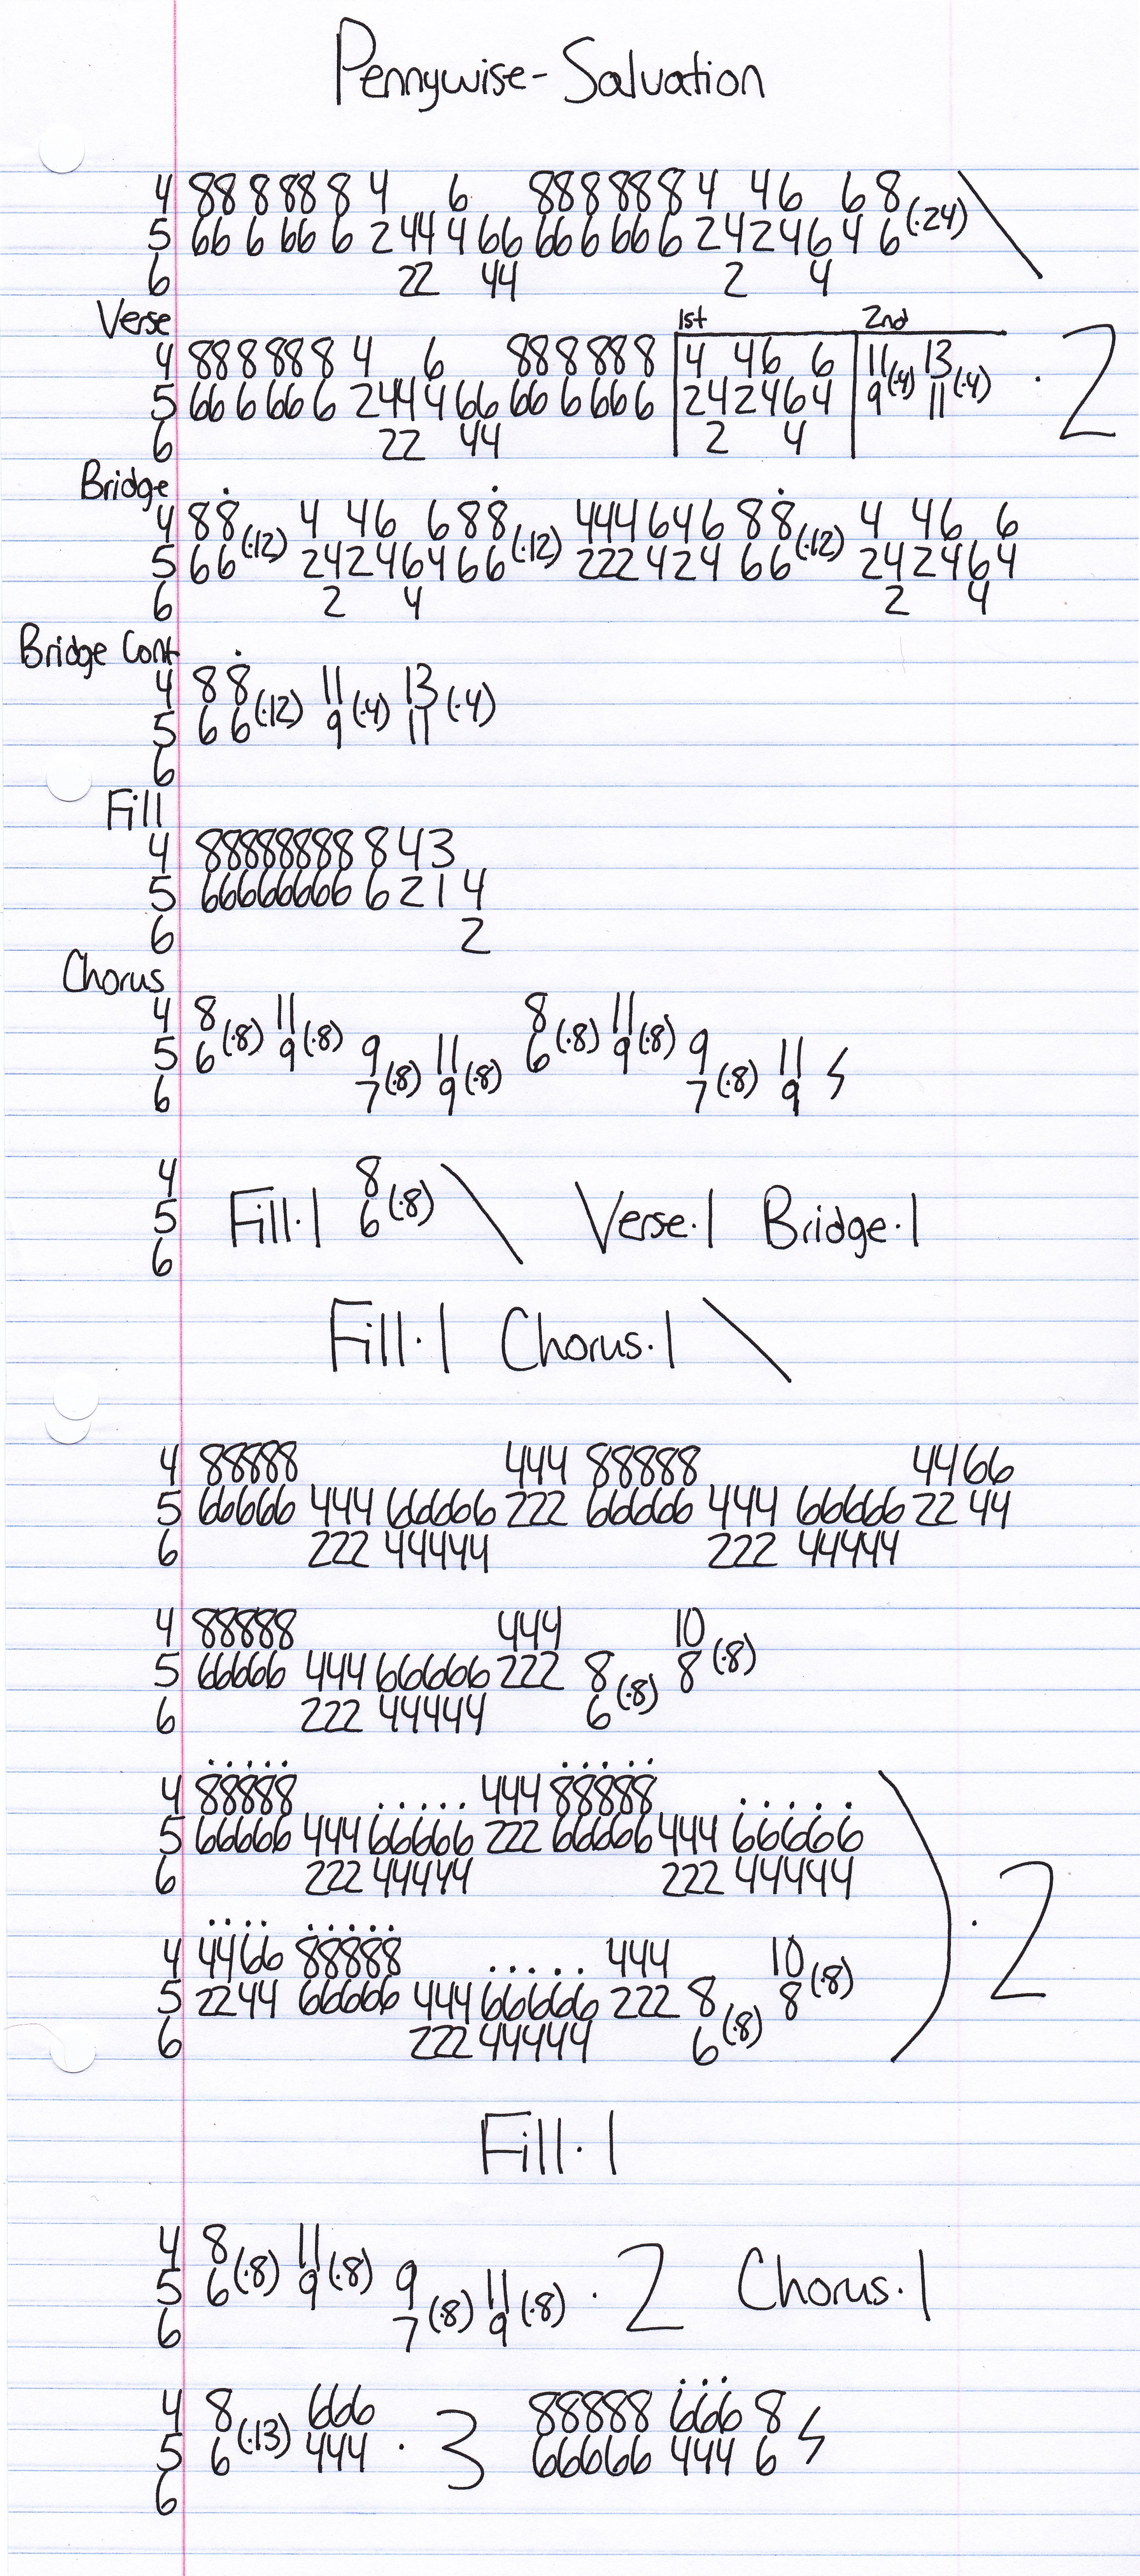 Pennywise - Salvation
4 88 8 88 8 4 6 88 8 88 8 4 46 6 8
5 66 6 66 6 2 44 4 66 66 6 66 6 2 4 2 4 6 4 6 (·24) \
6 22 44 2 4
Verse 1st 2nd
4 88 8 88 8 4 6 88 8 88 8 4 46 6 11(·4) 13(·4) · 2
5 66 6 66 6 2 44 4 66 66 6 66 6 2 4 2 4 6 4 9 11
6 22 44 2 4
Bridge
4 8 8 4 46 6 8 8 444 6 4 6 8 8 4 46 6
5 6 6 (·12) 2 4 2 4 6 4 6 6 (·12) 222 4 2 4 6 6 (·12) 2 4 2 4 6 4
6 2 4 2 4
Bridge Cont
4 8 8 11 13
5 6 6 (·12) 9 (·4) 11 (·4)
6
Fill
4 88888888 8 4 3
5 66666666 6 2 1 4
6 2
Chorus
4 8 11 8 11
5 6 (·8) 9 (·8) 9 11 6 (·8) 9 (·8) 9 11
6 7 (·8) 9 (·8) 7 (·8) 9
4 8
5 Fill·1 6 (·8) \ Verse·1 Bridge·1
6
Fill·1 Chorus·1 \
4 88888 444 88888 44 66
5 66666 444 66666 222 66666 444 66666 22 44
6 222 44444 222 44444
4 88888 444 10
5 66666 444 66666 222 8 8 (·8)
6 222 44444 6 (·8)
4 88888 444 88888
5 66666 444 66666 222 66666 444 66666
6 222 44444 222 44444
) · 2
4 4466 88888 444 10
5 2244 66666 444 66666 222 8 8 (·8)
6 222 44444 6 (·8)
Fill·1
4 8 11
5 6 (·8) 9 (·8) 9 11 · 2 Chorus·1
6 7 (·8) 9 (·8)
4 8 666 88888 666 8
5 6 (·13) 444 · 3 66666 444 6
6